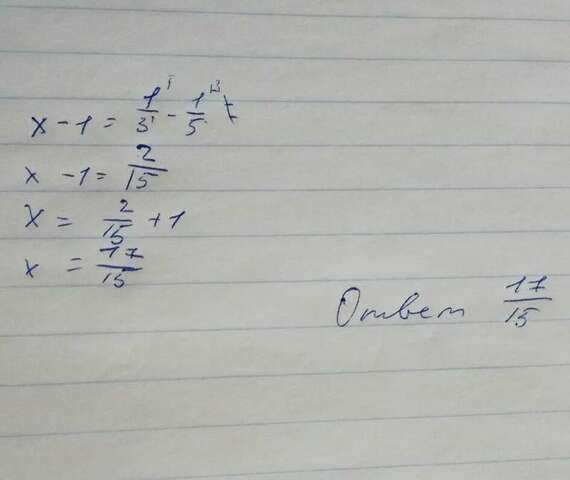 x - 1 = 1/3 - 1/5
x - 1 = 2/15
x = 2/15 + 1
x = 17/15
Ответ 17/15